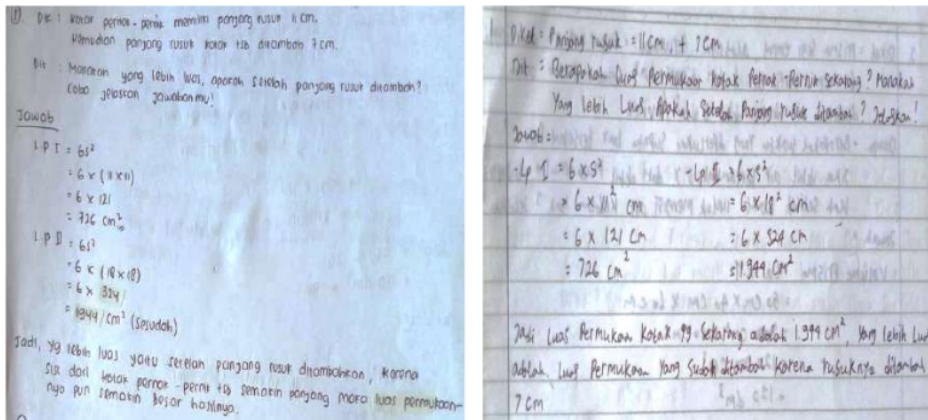 ① Dik : kotak pernak-pernik memiliki panjang rusuk 11 cm.
kemudian panjang rusuk kotak tsb ditambah 7 cm.
Dit : Manakah yang lebih luas, apakah setelah panjang rusuk ditambah?
Coba jelaskan jawabanmu!
Jawab
L P I = 6s²
= 6 x (11x11)
= 6 x 121
= 726 cm²
L P II = 6s²
= 6 x (18x18)
= 6 x 324
= 1944 cm² (sesudah)
Jadi, yg lebih luas yaitu setelah panjang rusuk ditambahkan, karena
sisi dari kotak pernak-pernik tsb semakin panjang maka luas permukaan-
nya pun semakin besar hasilnya.
Diket : Panjang rusuk = 11 cm, + 7 cm
Dit : Berapakah luas Permukaan kotak Pernak-Pernik sekarang? Manakah
Yang lebih Luas, Apakah setelah Panjang rusuk ditambah? Jelaskan!
Jawab =
- Lp I = 6 x s²
= 6 x 11² cm
= 6 x 121 cm
= 726 cm²
- Lp II = 6 x s²
= 6 x 18² cm
= 6 x 324 cm
= 1.944 cm²
Jadi Luas Permukaan kotak yg sekarang adalah 1.944 cm², yang lebih Luas
adalah Luas Permukaan yang sudah ditambah karena rusuknya ditambah
7 cm